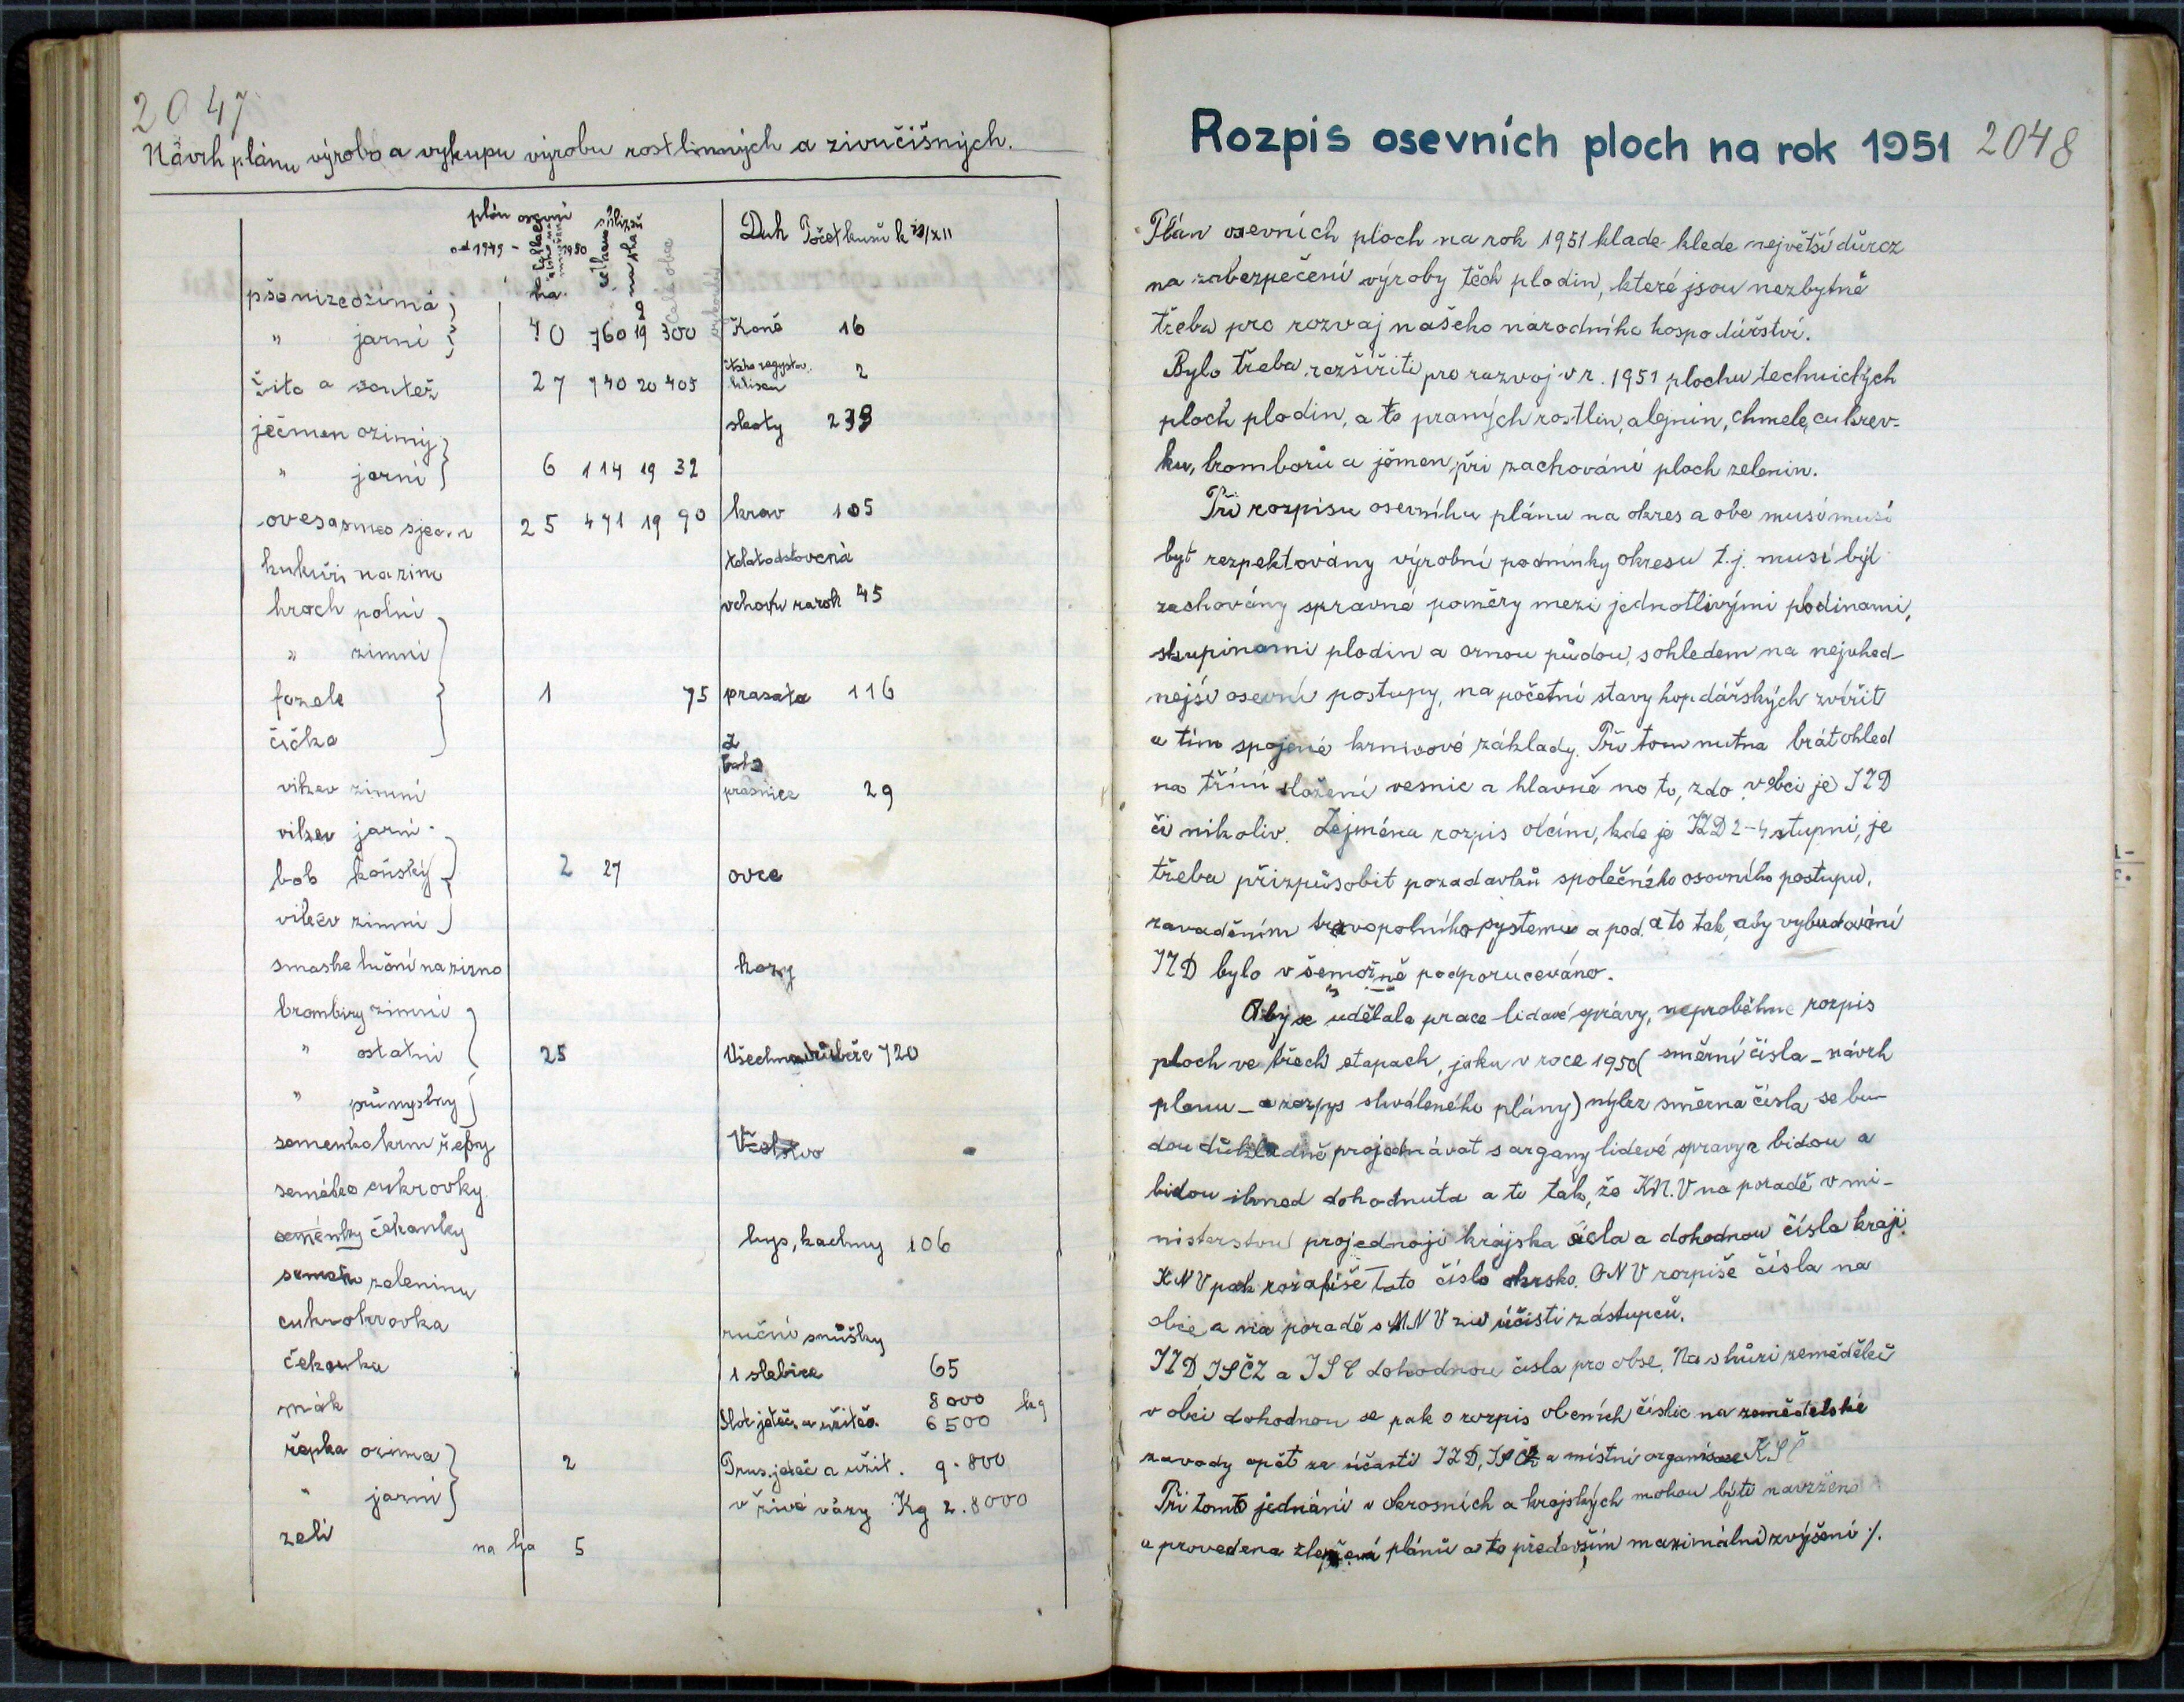 2047
Návrh plánu výroba a vykupu výrobu rostlinných a zivučišných.
plán osevní sklizně
od 1949 - 1950
ha. celkem na ha
Duh Počet kusů k 13/XII
pšonizeozimá }
" jarní } 40 760 19 300 Koně 16
žito a soutež 27 740 20 405 2
ječmen ozimý } skoty 239
" jarní } 6 114 19 32
ovesasmes sječ. 25 471 19 90 krav 105
kukuři na zrno telatodstavená
hroch polní vchovu narok 45
" zimní
fazole 1 75 prasata 116
čočka
vikev zimní prasnice 29
vikev jarní
bob koňský 2 27 ovce
vikev zimní
smaska luční na zrno kozy
brombiry zimní
" ostatní 25 Všechna drůbeže 720
" průmyslny
semenko krm řepy Včelstvo
semeneo cukrovky
seménky čekanky husy, kachny 106
semen zeleninu
cukrokrovka ruční snůšky
čekanka 1 slebice 65
mák 8000 kg
Hov jateč. a užiteč. 6500
řepka ozima } 2 Prus. jateč a užit. 9.800
" jarní } v živé váhy Kg 2.8000
zelí na ha 5
Rozpis osevních ploch na rok 1951 2048
Plán osevních ploch na rok 1951 klade klede největší důrcz
na zabezpečení výroby těch plodin, které jsou nezbytně
třeba pro rozvaj našeho národního hospodářství.
Bylo třeba rozšířiti pro rozvoj v r. 1951 plochu technických
ploch plodin, a to praných rostlin, alejnin, chmele, cukrev-
ku, bramborů a jěmen, při zachování ploch zelenin.
Při rozpisu osevního plánu na okres a obe musí musí
byt rezpektovány výrobní podmínky okresu t.j. musí být
zachovány spravné poměry mezi jednotlivými plodinami,
skupinami plodin a ornou půdou, s ohledem na nejvhod-
nejší osevní postupy, na početní stavy hopdářských zvířit
a tím spojené krmivové základy. Při tom nutna brát ohled
na třínní složení vesnic a hlavně na to, zda v obci je JZD
či nikoliv. Zejména rozpis obcím, kde je JZD 2-4 stupni, je
třeba přizpůsobit pozadavků společného osovního postupu,
zavaděním travopolního systemu a pod. a to tak, aby vybudování
JZD bylo všemožně podporucováno.
Aby se udělala prace lidové správy, neproběhne rozpis
ploch ve třech etapach, jaku v roce 1950 ( směrní čísla - návrh
planu - a rozpys shváleného plány) nýbrz směrna čísla se bu-
dou důkladně projednávat s argany lidevé spravy a bidou a
bidou ihned dohodnuta a to tak, že KN.V na poradě v mi-
nisterstvu projednáji krajska čísla a dohodnou čísla kraji.
KNV pak rozepíše tato číslo okrsko. ONV rozpiše čísla na
obce a na poradě s MNV za účisti zástupců.
JZD, JSČZ a JSČ dohodnou čísla pro obse. Na shůzi zemědělců
v obci dohodnou se pak o rozpis obcních číslic na zemědělské
zavody opět za účasti JZD, JSČZ a místní organisace KSČ
Při tomto jednání v okrosních a krajských mohou býti navržena
a provedena zlepšená plánů a to předevsím maximální zvýšení ·/.